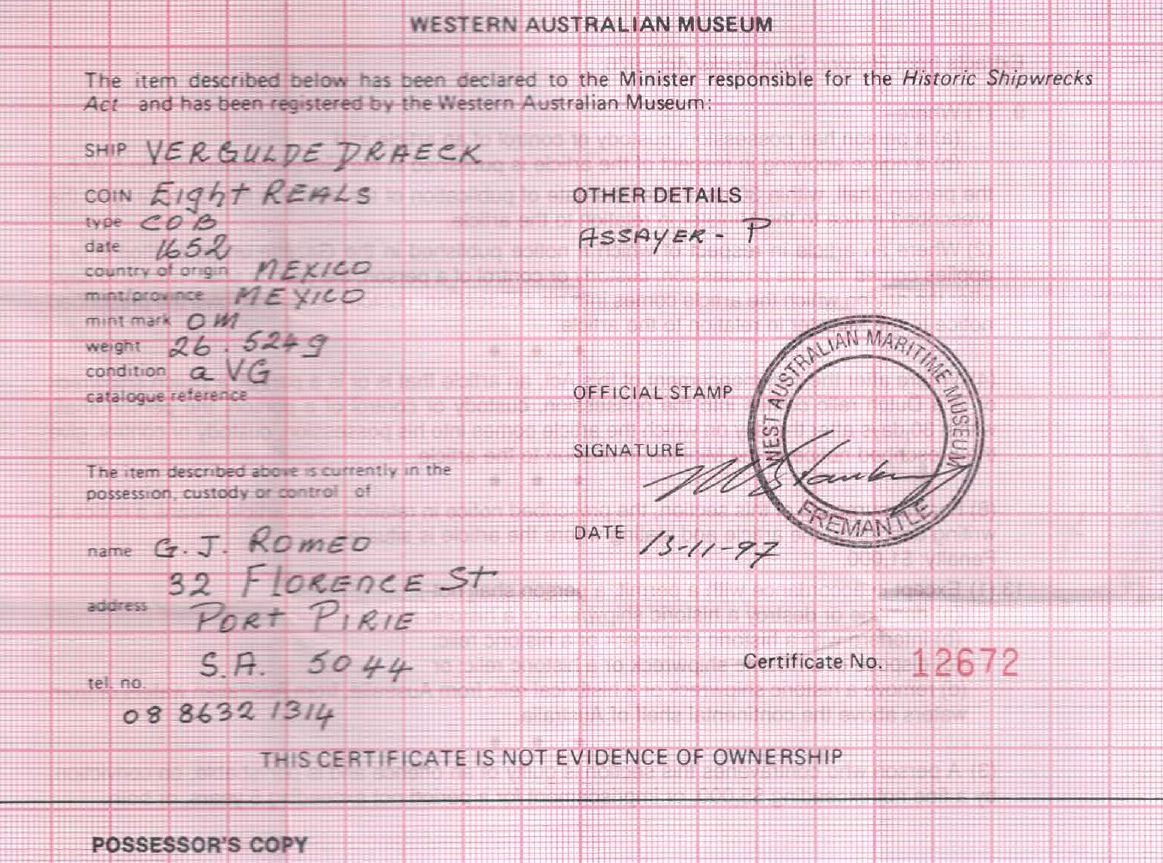 WESTERN AUSTRALIAN MUSEUM
The item described below has been declared to the Minister responsible for the Historic Shipwrecks
Act and has been registered by the Western Australian Museum:
SHIP VERGULDE DRAECK
COIN Eight REALS
type COB
date 1652
country of origin MEXICO
mint/province MEXICO
mint mark OM
weight 26.524g
condition a VG
catalogue reference
OTHER DETAILS
ASSAYER - P
OFFICIAL STAMP
WEST AUSTRALIAN MARITIME MUSEUM
FREMANTLE
SIGNATURE
DATE 13-11-97
The item described above is currently in the
possession, custody or control of
name G. J. ROMEO
address 32 FLORENCE St
PORt PIRIE
S.A. 5044
tel. no.
08 8632 1314
Certificate No. 12672
THIS CERTIFICATE IS NOT EVIDENCE OF OWNERSHIP
POSSESSOR'S COPY